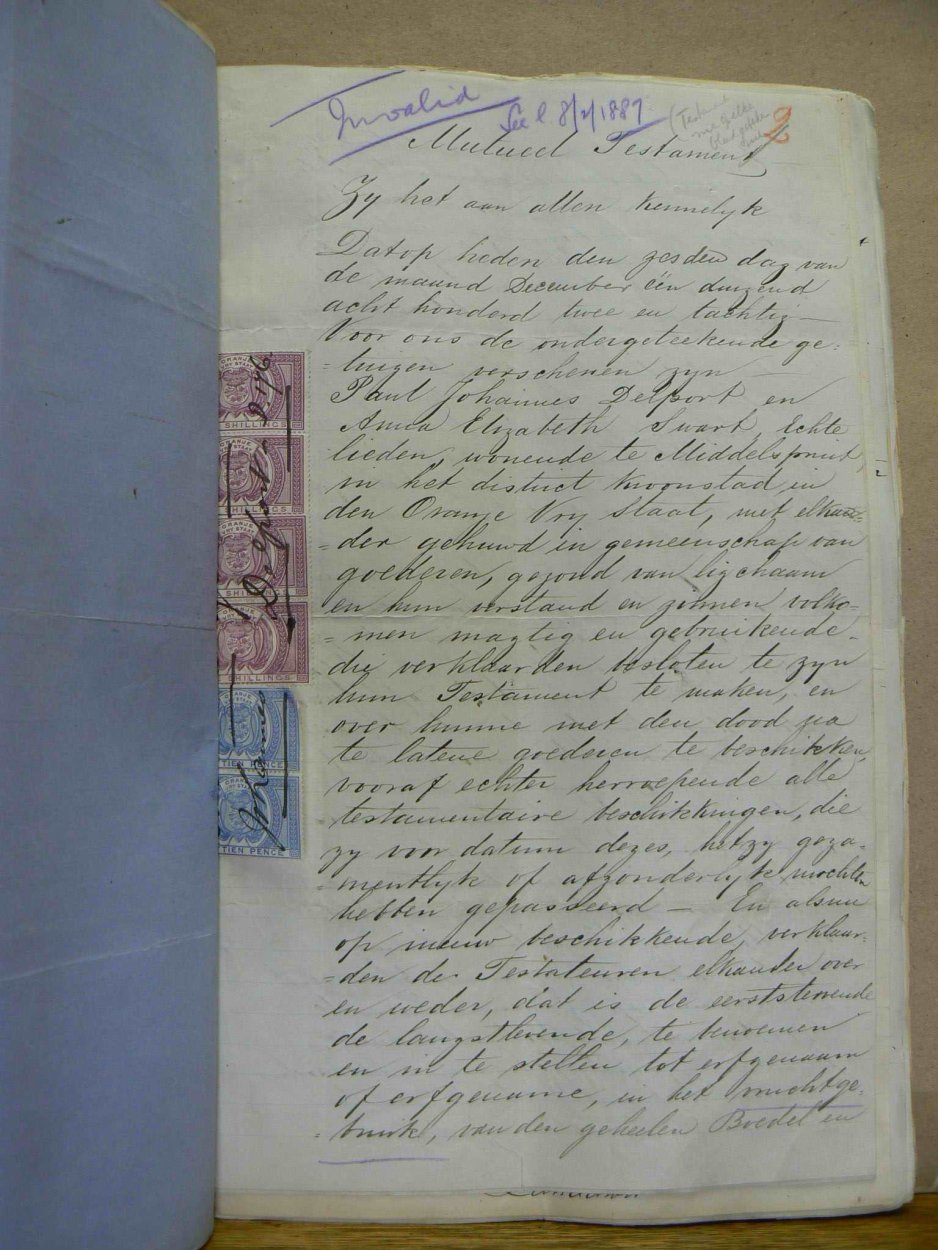 Invalid
See l. 8/2/1887
2
Mutueel Testament
Zy het aan allen kennelyk
Dat op heden den zesden dag van
de maand December één duizend
acht honderd twee en tachtig
Voor ons de ondergeteekende ge-
=tuigen verschenen zyn
Paul Johannes Delport en
Anna Elizabeth Swart, Echte
lieden, wonende te Middelspruit,
in het district Kroonstad, in
den Oranje Vry Staat, met elkan=
=der gehuwd in gemeenschap van
goederen, gezond van ligchaam
en hun verstand en zinnen volko=
=men magtig en gebruikende.
die verklaarden besloten te zyn
hun Testament te maken, en
over hunne met den dood na
te latene goederen te beschikken,
vooraf echter herroepende alle
testamentaire beschikkingen, die
zy voor datum dezes, hetzy geza=
=mentlyk of afzonderlyk mochten
hebben gepasseerd — En alsnu
op nieuw beschikkende, verklaar=
=den de Testateuren elkander over
en weder, dat is de eerststervende
de langstlevende, te benoemen
en in te stellen tot erfgenaam
of erfgename, in het vruchtge=
=bruik, van den geheelen Boedel en
ORANJE
VRY STAAT
SHILLINGS
ORANJE
VRY STAAT
SHILLINGS
ORANJE
VRY STAAT
SHILLINGS
SHILLINGS
TIEN PENCE
ORANJE
VRY STAAT
TIEN PENCE
Delport